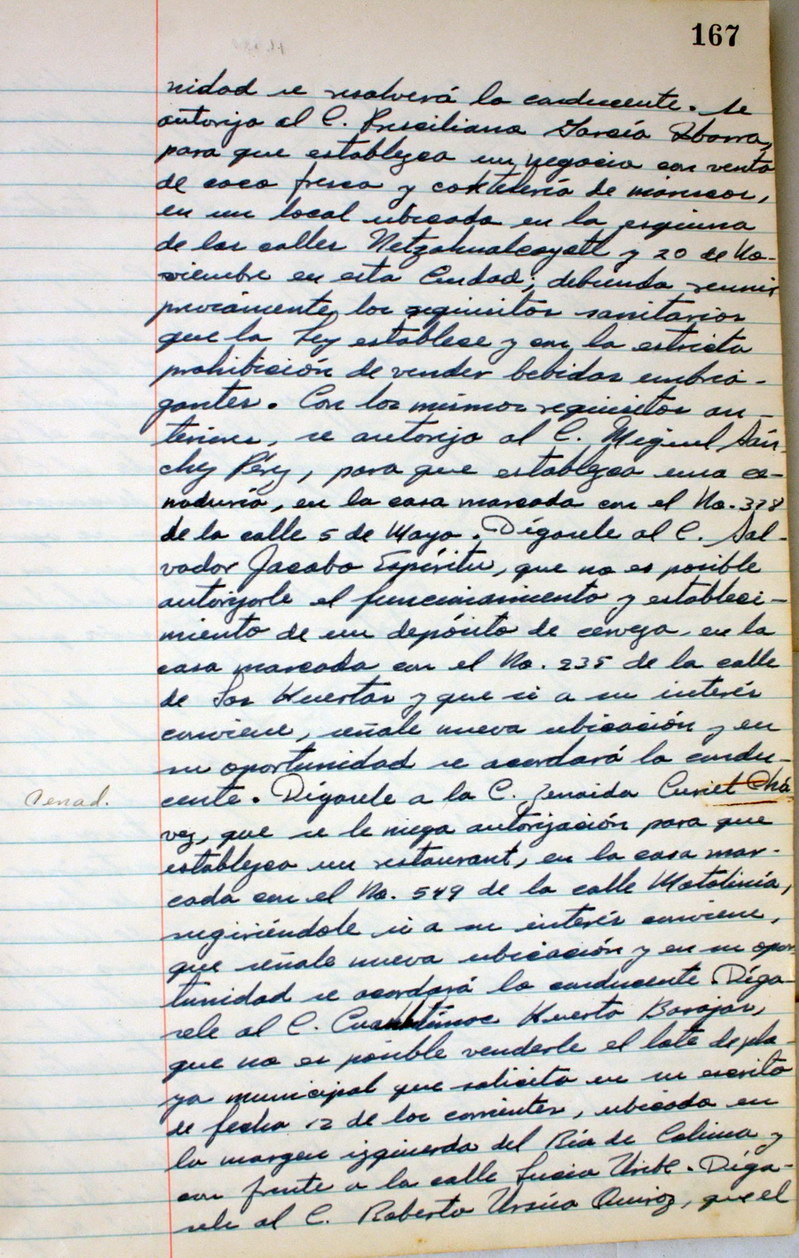 167
nidad se resolverá lo conducente. Se
autoriza al C. Presciliano García Ibarra,
para que establezca un negocio con venta
de coco fresco y coktelería de mariscos,
en un local ubicado en la esquina
de las calles Netzahualcoyotl y 20 de No-
viembre en esta Ciudad; debiendo reunir
previamente los requisitos sanitarios
que la Ley establece y con la estricta
prohibición de vender bebidas embria-
gantes. Con los mismos requisitos an-
teriores, se autoriza al C. Miguel Sán-
chez Pérez, para que establezca una ce-
naduría, en la casa marcada con el No. 338
de la calle 5 de Mayo. Dígasele al C. Sal-
vador Jacobo Espíritu, que no es posible
autorizarle el funcionamiento y estableci-
miento de un depósito de cerveza, en la
casa marcada con el No. 235 de la calle
de Los Huertos y que si a su interés
conviene, señale nueva ubicación y en
su oportunidad se acordará lo condu-
Venad.
cente. Dígasele a la C. Zenaida Curiel Chá-
vez, que se le niega autorización para que
establezca un restaurant, en la casa mar-
cada con el No. 549 de la calle Motolinía,
sugiriéndole si a su interés conviene,
que señale nueva ubicación y en su opor-
tunidad se acordará lo conducente Díga-
sele al C. Cuauhtémoc Huerta Barajas,
que no es posible venderle el lote de pla-
ya municipal que solicita en su escrito
de fecha 12 de los corrientes, ubicado en
la margen izquierda del Río de Colima y
con frente a la calle Lucio Uribe. Díga-
sele al C. Roberto Ursúa Quiroz, que el